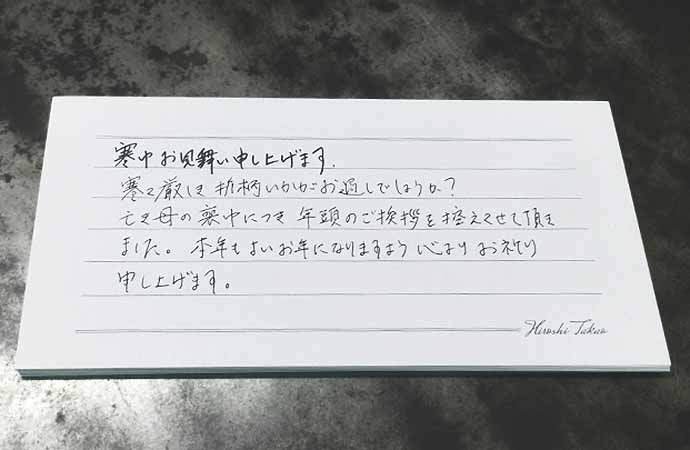 寒中お見舞い申し上げます.
寒さ厳しき折柄いかがお過しでしょうか?
亡き母の喪中につき年頭のご挨拶を控えさせて頂き
ました。本年もよいお年になりますよう心よりお祈り
申し上げます。
Hiroshi Takao